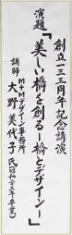 創立一三三周年記念講演
演題
「美しい橋を創るー橋とデザインー」
講師
M+Mデザイン事務所
大野美代子氏(昭和三十三年卒業)